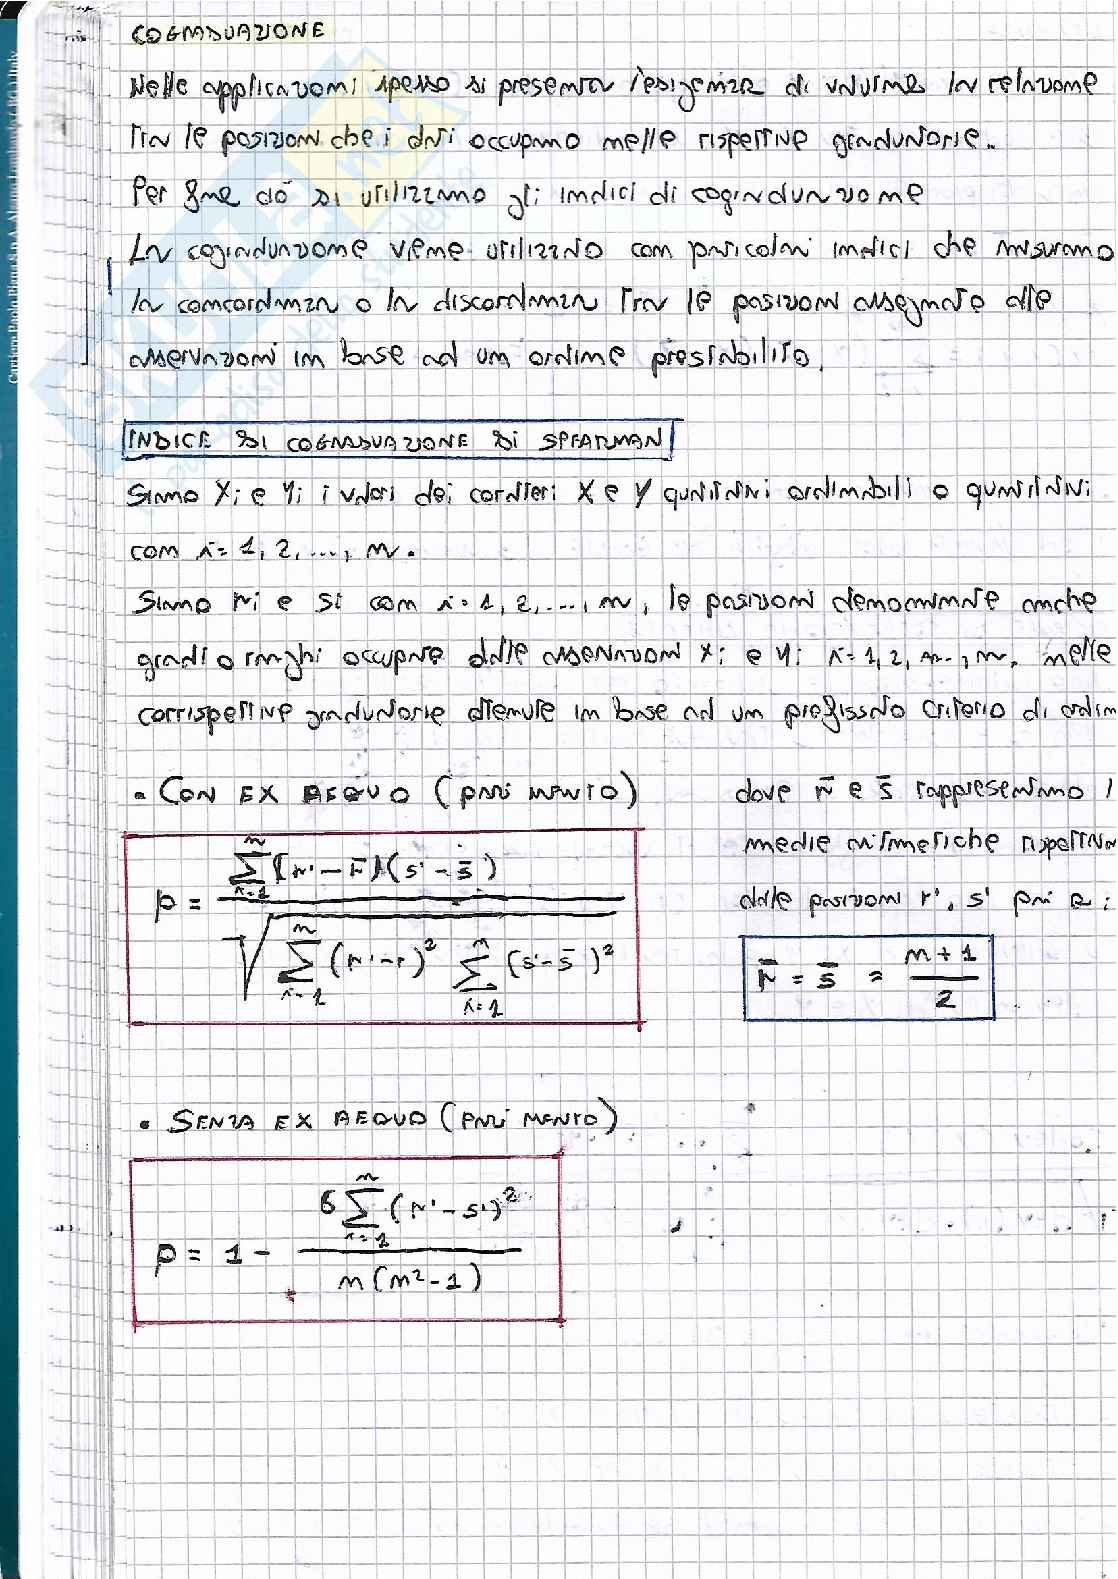 COGRADUAZIONE
Nelle applicazioni spesso si presenta l'esigenza di valutare la relazione
tra le posizioni che i dati occupano nelle rispettive graduatorie.
Per fare ciò si utilizzano gli indici di cograduazione
La cograduazione viene utilizzata con particolari indici che misurano
la concordanza o la discordanza tra le posizioni assegnate alle
osservazioni in base ad un ordine prestabilito.
INDICE DI COGRADUAZIONE DI SPEARMAN
Siano Xi e Yi i valori dei caratteri X e Y qualitativi ordinabili o quantitativi
con i = 1, 2, ..., n.
Siano ri e si con i = 1, 2, ..., n, le posizioni denominate anche
gradi o ranghi occupate dalle osservazioni Xi e Yi i = 1, 2, ..., n, nelle
corrispettive graduatorie ottenute in base ad un prefissato criterio di ordin
• CON EX AEQUO (PARI MERITO)
ρ = Σ(r' - r̄)(s' - s̄) / √ Σ(r' - r)² Σ(s' - s̄)²
n i=1 n i=1 n i=1
dove r̄ e s̄ rappresentano l
medie aritmetiche rispettiva
dalle posizioni r', s' pari a:
r̄ = s̄ = n + 1 / 2
• SENZA EX AEQUO (PARI MERITO)
ρ = 1 - 6 Σ(r' - s')² / n(n² - 1)
n i=1